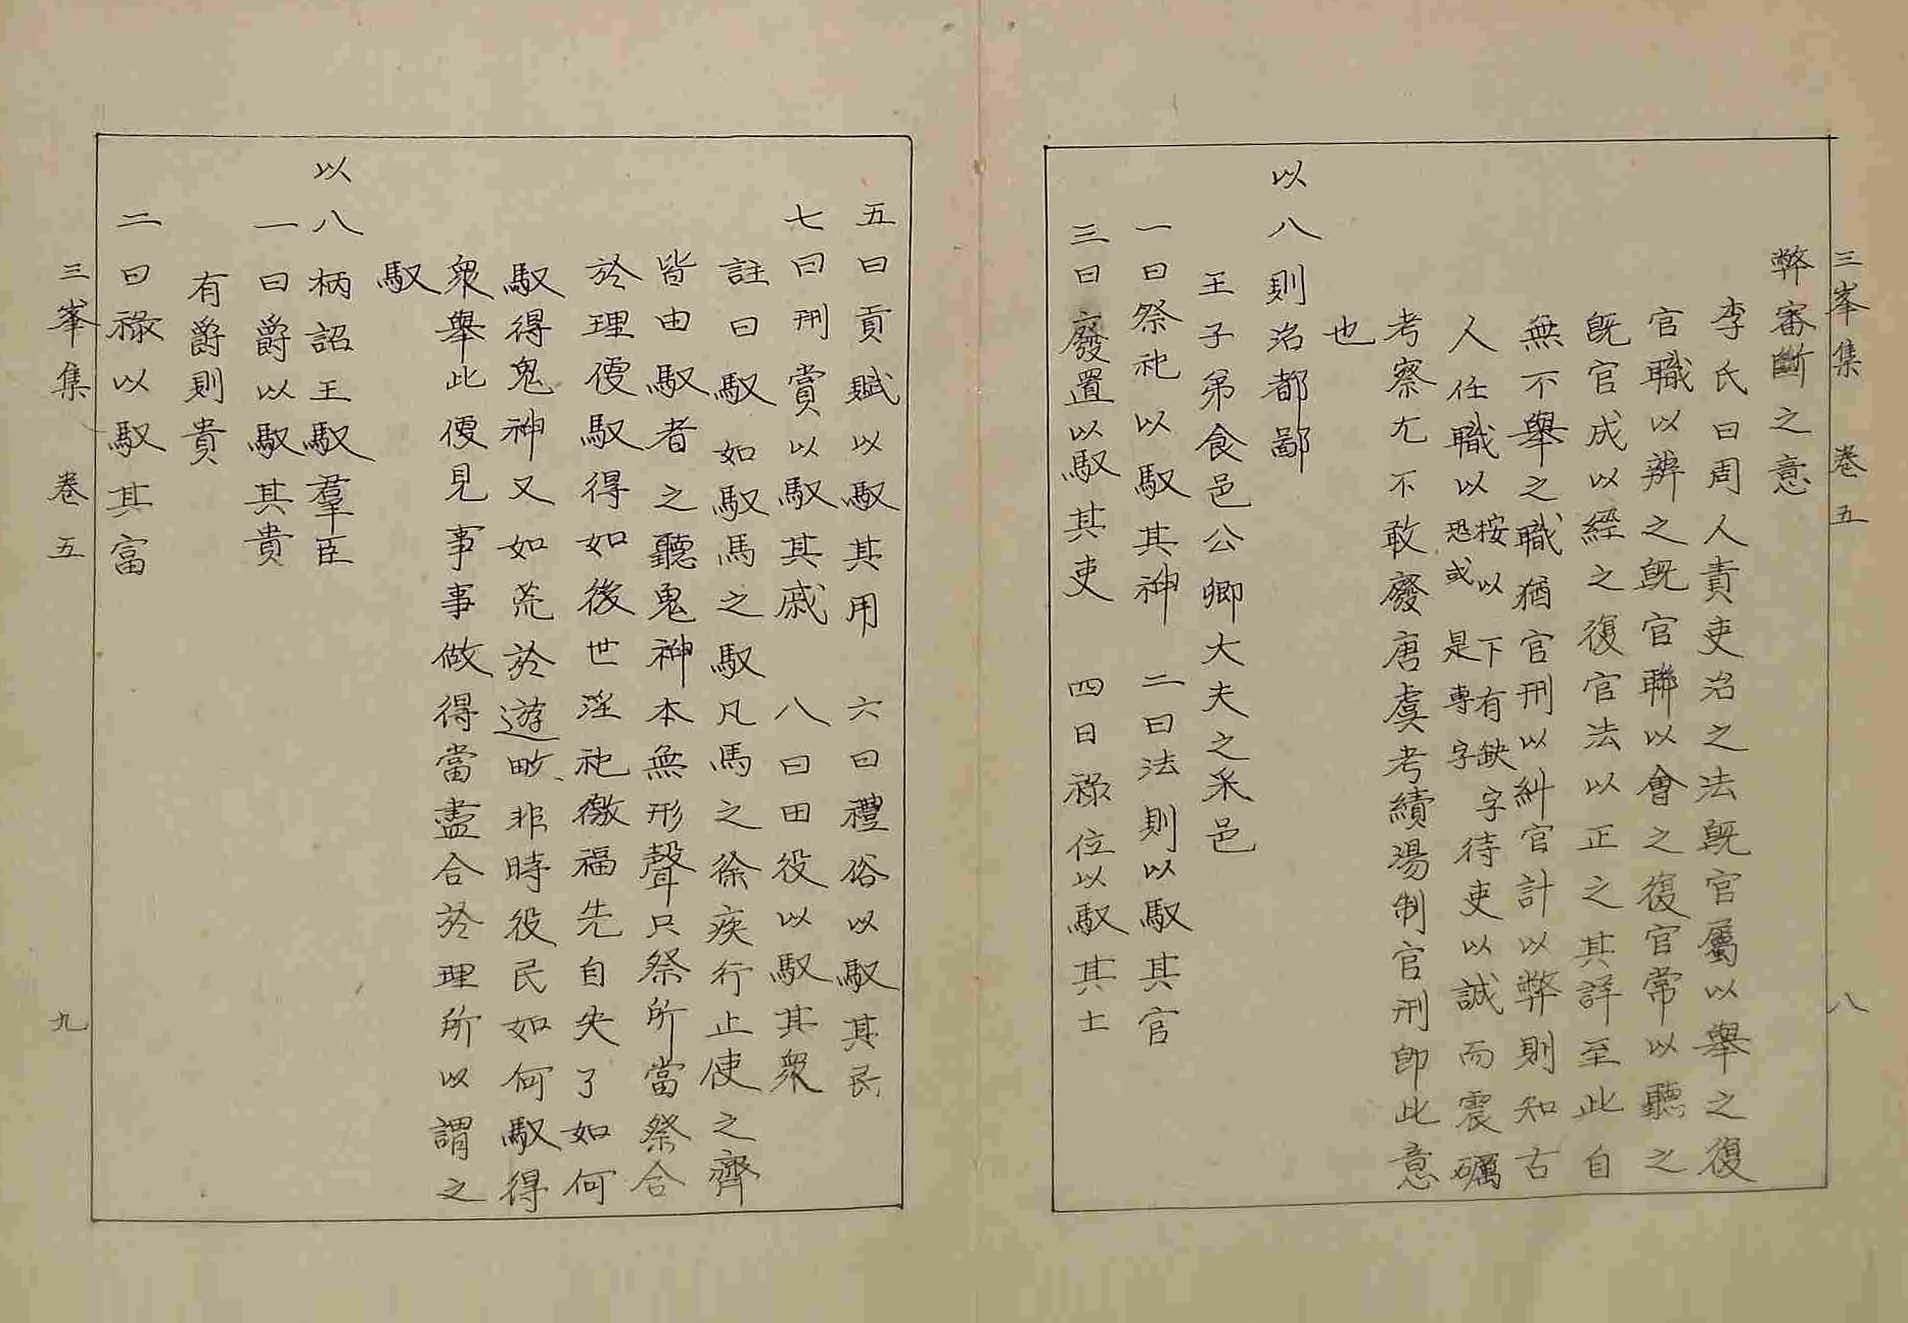 三峯集 卷五 八
弊審斷之意
李氏曰周人責吏治之法旣官屬以舉之復
官職以辨之旣官聯以會之復官常以聽之
旣官成以經之復官法以正之其詳至此自
無不舉之職猶官刑以糾官計以弊則知古
人任職以按以下有缺字恐或是專字待吏以誠而震礪
考察尤不敢廢唐虞考績湯制官刑卽此意
也
以八則治都鄙
王子弟食邑公卿大夫之采邑
一曰祭祀以馭其神 二曰法則以馭其官
三曰廢置以馭其吏 四曰祿位以馭其士
五曰貢賦以馭其用 六曰禮俗以馭其民
七曰刑賞以馭其戚 八曰田役以馭其衆
註曰馭如馭馬之馭凡馬之徐疾行止使之齊
皆由馭者之聽鬼神本無形聲只祭所當祭合
於理便馭得如後世淫祀徼福先自失了如何
馭得鬼神又如荒於遊畋非時役民如何馭得
衆舉此便見事事做得當盡合於理所以謂之
馭
以八柄詔王馭羣臣
一曰爵以馭其貴
有爵則貴
二曰祿以馭其富
三峯集 卷五 九